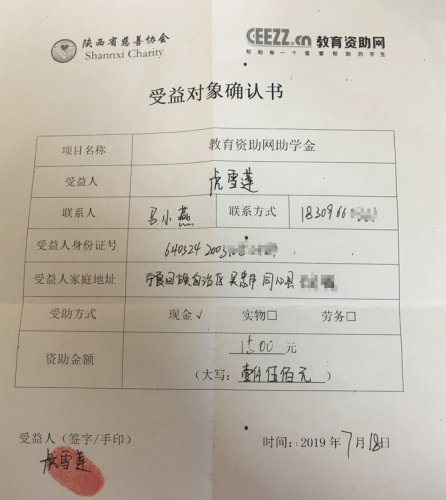 陕西省慈善协会
Shannxi Charity
CEEZZ.cn 教育资助网
帮助每一个需要帮助的学生
受益对象确认书
项目名称 教育资助网助学金
受益人 虎雪莲
联系人 马小燕 联系方式 1830966
受益人身份证号 640324 2003
受益人家庭地址 宁夏回族自治区吴忠市同心县
受助方式 现金√ 实物□ 劳务□
资助金额 1500 元
(大写:壹仟伍佰元)
受益人(签字/手印) 时间::2019年7月18日
虎雪莲